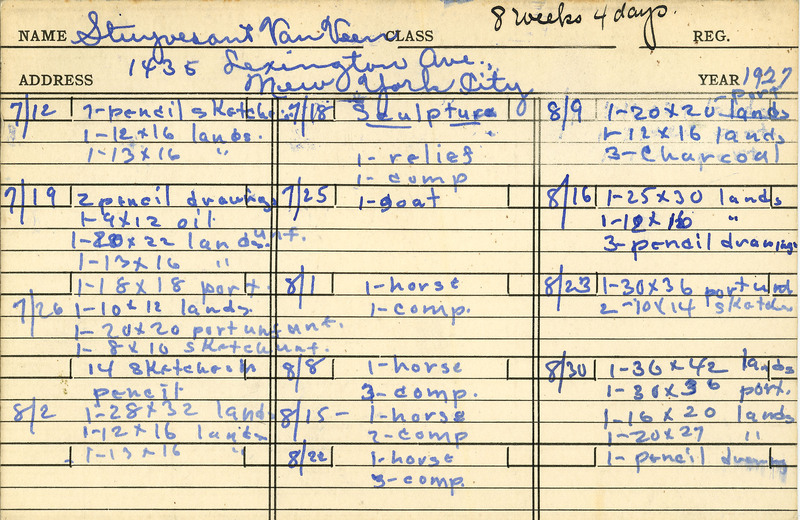 8 weeks 4 days.
NAME Stuyvesant Van Veen CLASS REG.
1435 Lexington Ave.,
ADDRESS New York City YEAR 1927
7/12 7-pencil sketches
1-12x16 lands.
1-13x16 "
7/19 2 pencil drawings
1-9x12 oil
1-20x22 lands. unf.
1-13x16 "
1-18x18 port.
7/26 1-10x12 lands.
1-20x20 port unf unf.
1-8x10 sketch unf.
14 sketches in
pencil
8/2 1-28x32 lands
1-12x16 lands
1-13x16 "
7/18 Sculpture
1-relief
1-comp
7/25 1-goat
8/1 1-horse
1-comp.
8/8 1-horse
3-comp.
8/15- 1-horse
2-comp
8/22 1-horse
3-comp.
8/9 1-20x20 port
lands
1-12x16 lands
3-Charcoal
8/16 1-25x30 lands
1-12x16 "
3-pencil drawings
8/23 1-30x36 port und
2-10x14 sketches
8/30 1-36x42 lands
1-30x36 port.
1-16x20 lands
1-20x27 "
1-pencil drawing